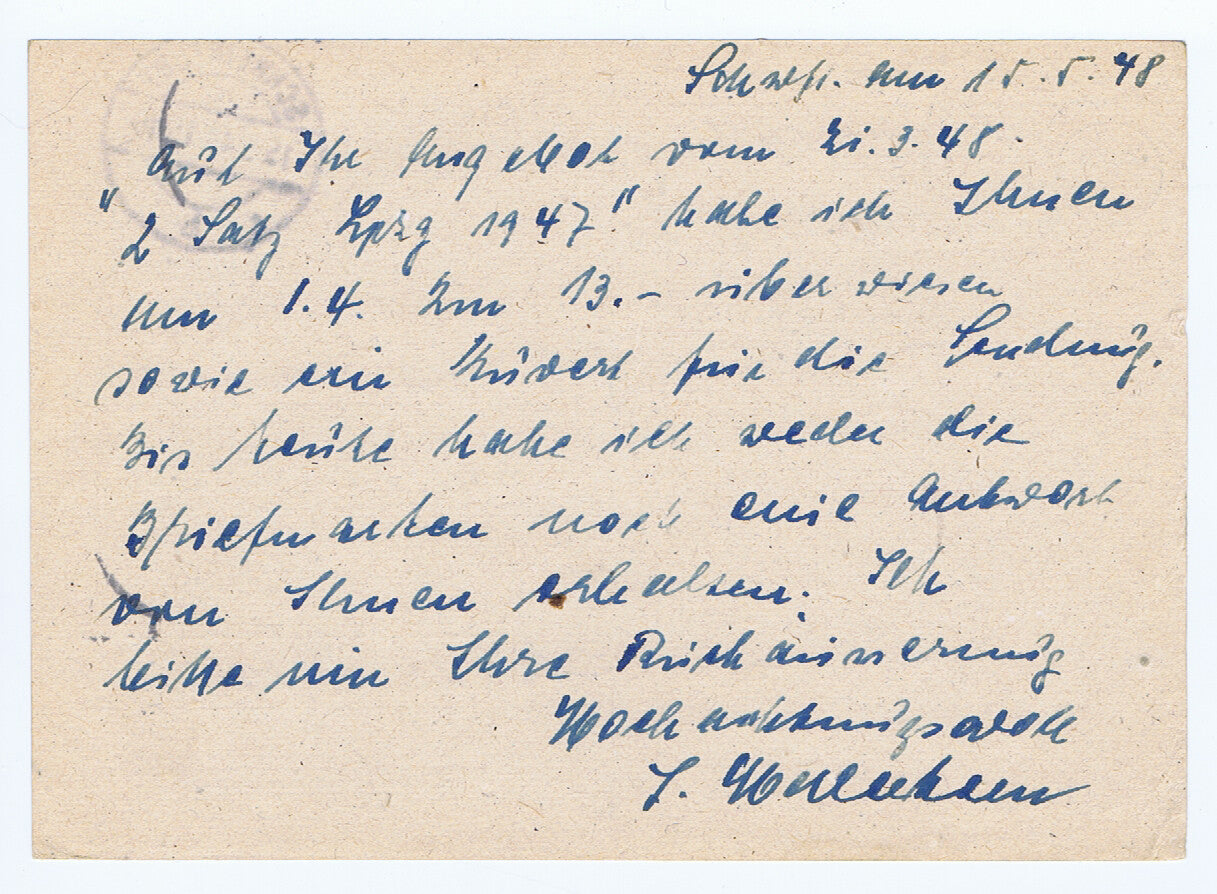 am 15.5.48
Auf Ihr Angebot vom 21.3.48.
"2 Satz Lpzg 1947" habe ich Ihnen
am 1.4. RM 13.- überwiesen
sowie ein Kuvert für die Sendung.
Bis heute habe ich weder die
Briefmarken noch eine Antwort
von Ihnen erhalten. Ich
bitte um Ihre Rückäusserung
Hochachtungsvoll